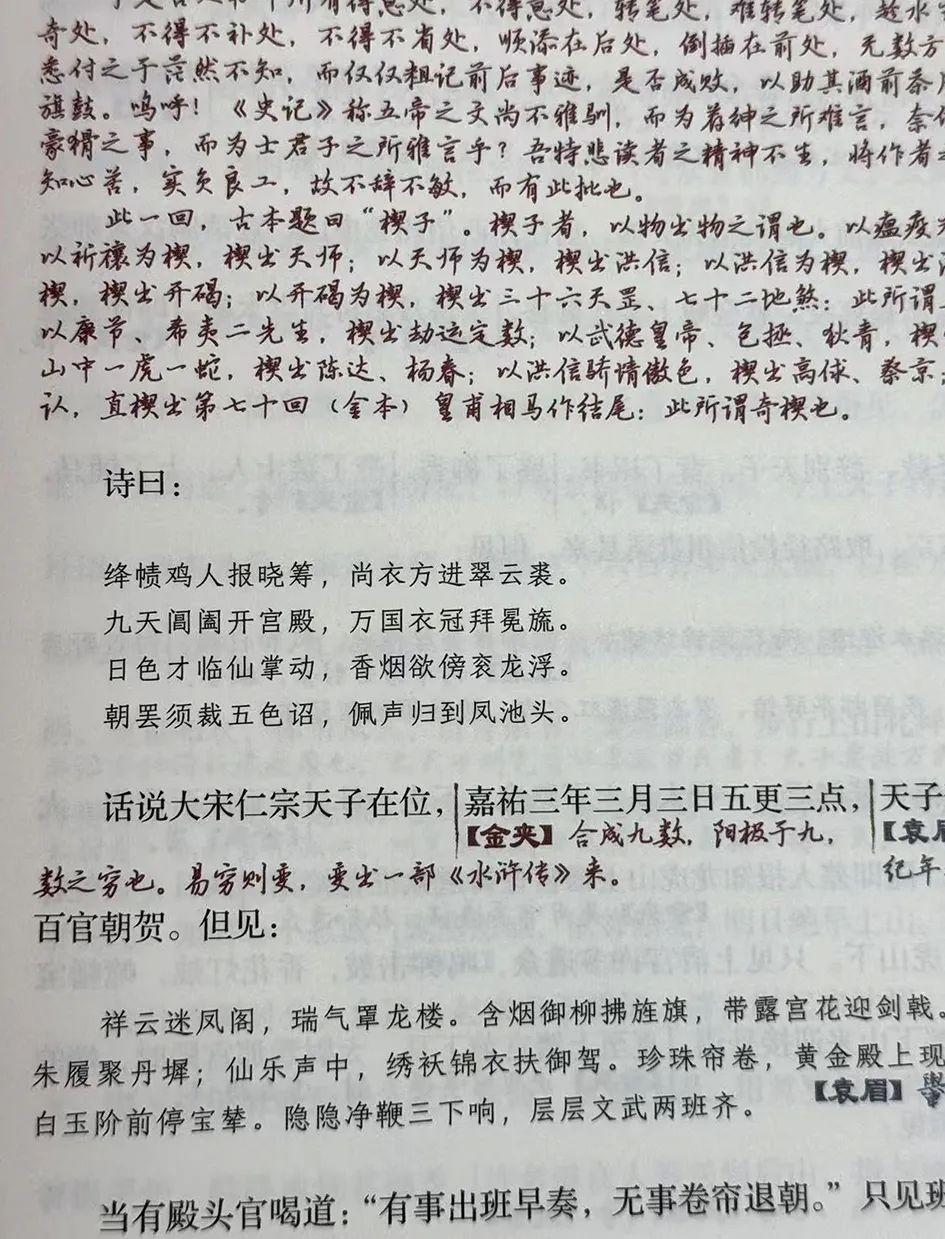 奇处，不得不补处，不得不省处，顺添在后处，倒插在前处，无数方
悉付之于茫然不知，而仅仅粗记前后事迹，是否成败，以助其酒前茶
旗鼓。呜呼！《史记》称五帝之文尚不雅驯，而为荐绅之所难言，奈
豪猾之事，而为士君子之所雅言乎？吾特悲读者之精神不生，将作者
知心苦，实负良工，故不辞不敏，而有此批也。
此一回，古本题曰“楔子”。楔子者，以物出物之谓也。以瘟疫
以祈禳为楔，楔出天师；以天师为楔，楔出洪信；以洪信为楔，楔出
楔，楔出开碣；以开碣为楔，楔出三十六天罡、七十二地煞：此所谓
以康节、希夷二先生，楔出劫运定数；以武德皇帝、包拯、狄青，楔
山中一虎一蛇，楔出陈达、杨春；以洪信骄情傲色，楔出高俅、蔡京；
认，直楔出第七十回（金本）皇甫相马作结尾：此所谓奇楔也。
诗曰：
绛帻鸡人报晓筹，尚衣方进翠云裘。
九天阊阖开宫殿，万国衣冠拜冕旒。
日色才临仙掌动，香烟欲傍衮龙浮。
朝罢须裁五色诏，佩声归到凤池头。
话说大宋仁宗天子在位，嘉祐三年三月三日五更三点，天子
【金夹】合成九数，阳极于九，【袁眉
数之穷也。易穷则变，变出一部《水浒传》来。纪年
百官朝贺。但见：
祥云迷凤阁，瑞气罩龙楼。含烟御柳拂旌旗，带露宫花迎剑戟。
朱履聚丹墀；仙乐声中，绣袄锦衣扶御驾。珍珠帘卷，黄金殿上现
白玉阶前停宝辇。隐隐净鞭三下响，层层文武两班齐。【袁眉】
当有殿头官喝道：“有事出班早奏，无事卷帘退朝。”只见班